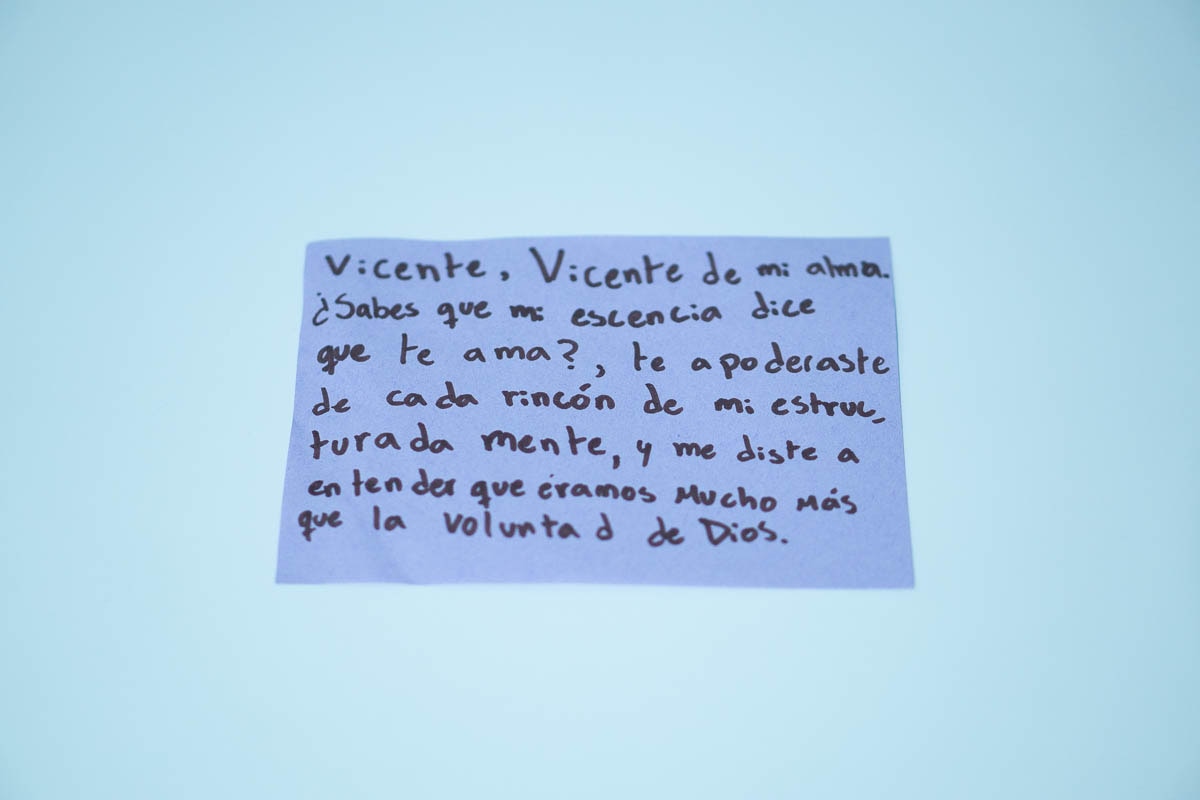 Vicente, Vicente de mi alma.
¿Sabes que mi escencia dice
que te ama?, te apoderaste
de cada rincón de mi estruc,
turada mente, y me diste a
entender que éramos Mucho Más
que la voluntad de Dios.